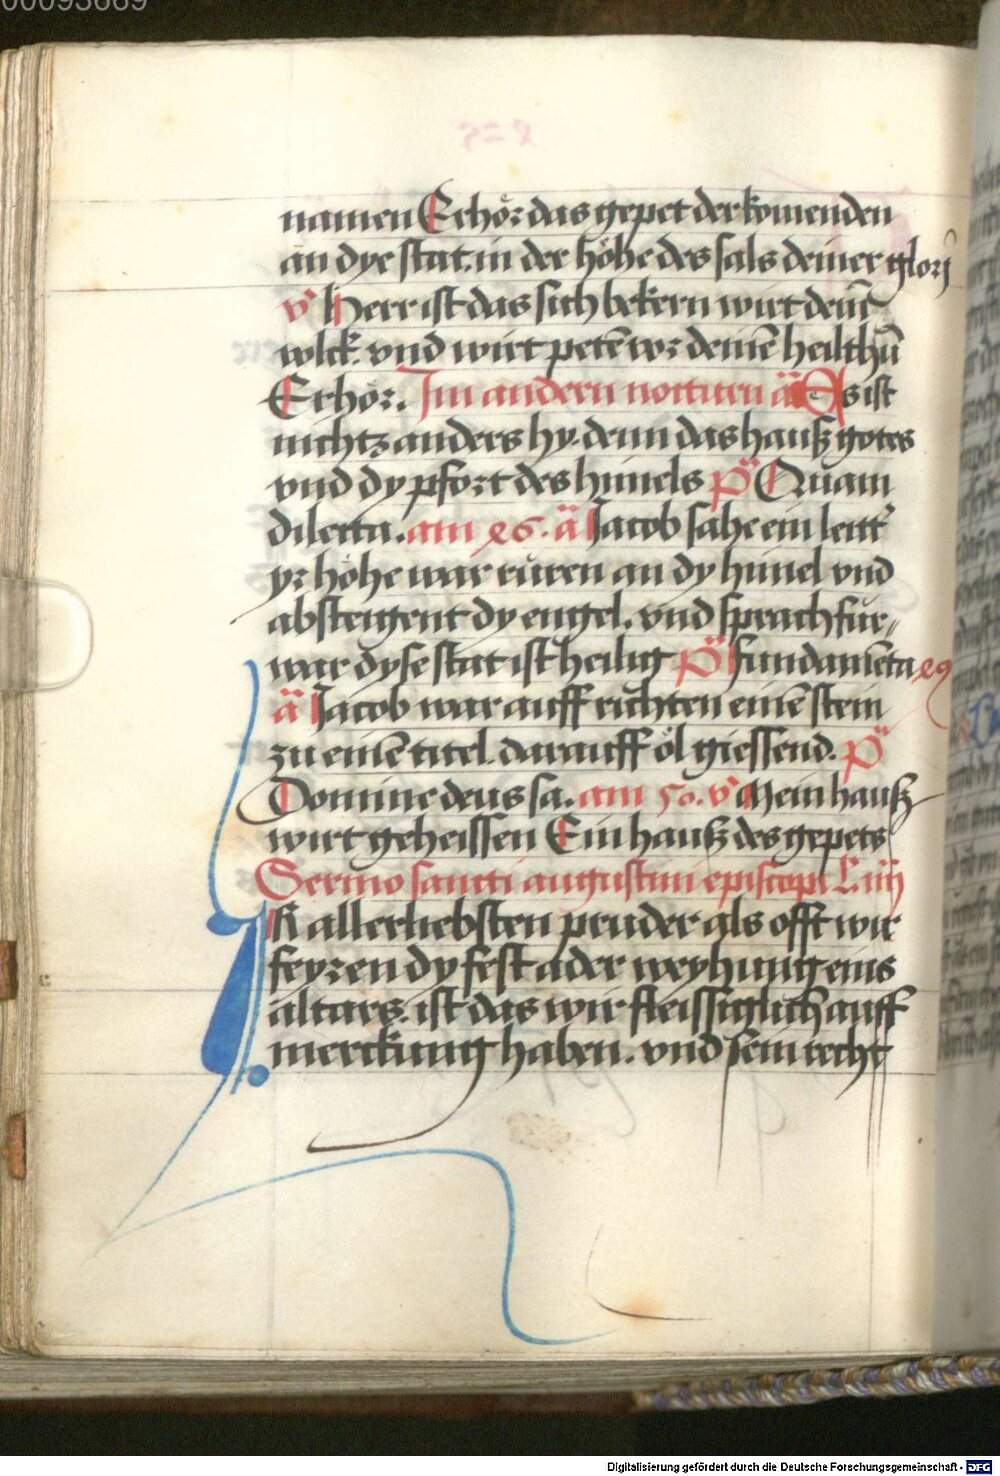 00093669
namen Erhör das gepet der komenden
an dye stat. in der höhe des sals deiner glorj
v̈ Herr ist das sich bekern wirt dein̄
volck. vnd wirt petē vor deinē heilthū
Erhör. Im andern notturn ä Es ist
nichtz anders hy. denn das hauß gotes
vnd dy pfort des himels p̈ Quam
dilecta. am ä Jacob sahe ein leitt'
yr höhe war rüren an dy himel vnd
absteigent dy engel. vnd sprach für„
war dyse stat ist heilig p̈ fundamēta
ä Jacob war auff richten einē stein
zu einē titel. darauff öl giessend. p̈
Domine deus sa. am v̈ Mein hauß
wirt geheissen Ein hauß des gepets
Sermo sancti augustini episcopi
allerliebsten pruder als offt wir
feyren dy fest ader weyhung eins
altars. ist das wir fleissiglich auff
merckung haben. vnd sein recht
Digitalisierung gefördert durch die Deutsche Forschungsgemeinschaft - DFG